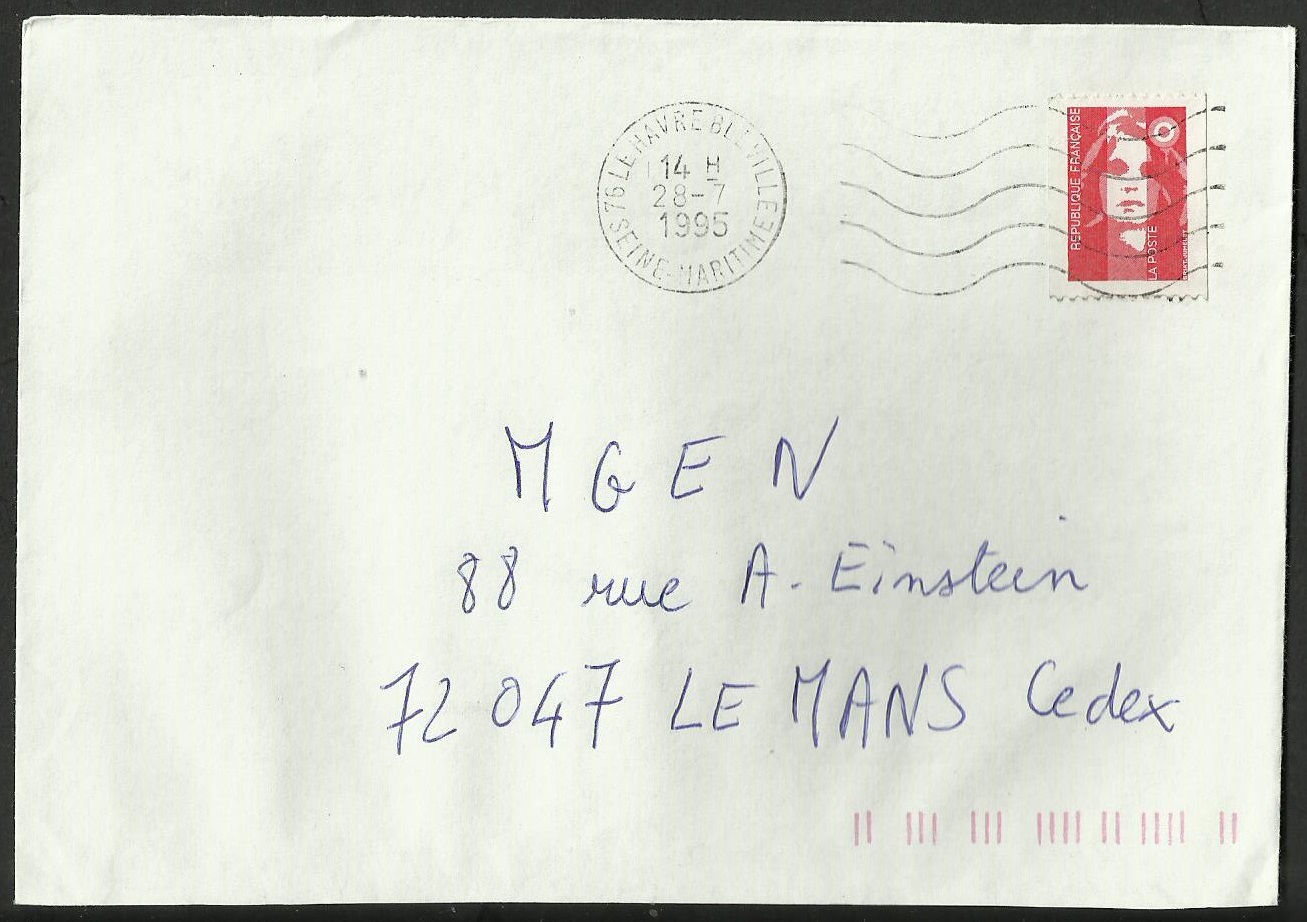 76 LE HAVRE BLEVILLE
14 H
28-7
1995
SEINE-MARITIME
REPUBLIQUE FRANÇAISE
LA POSTE
M G E N
88 rue A. Einstein
72 047 LE MANS Cedex